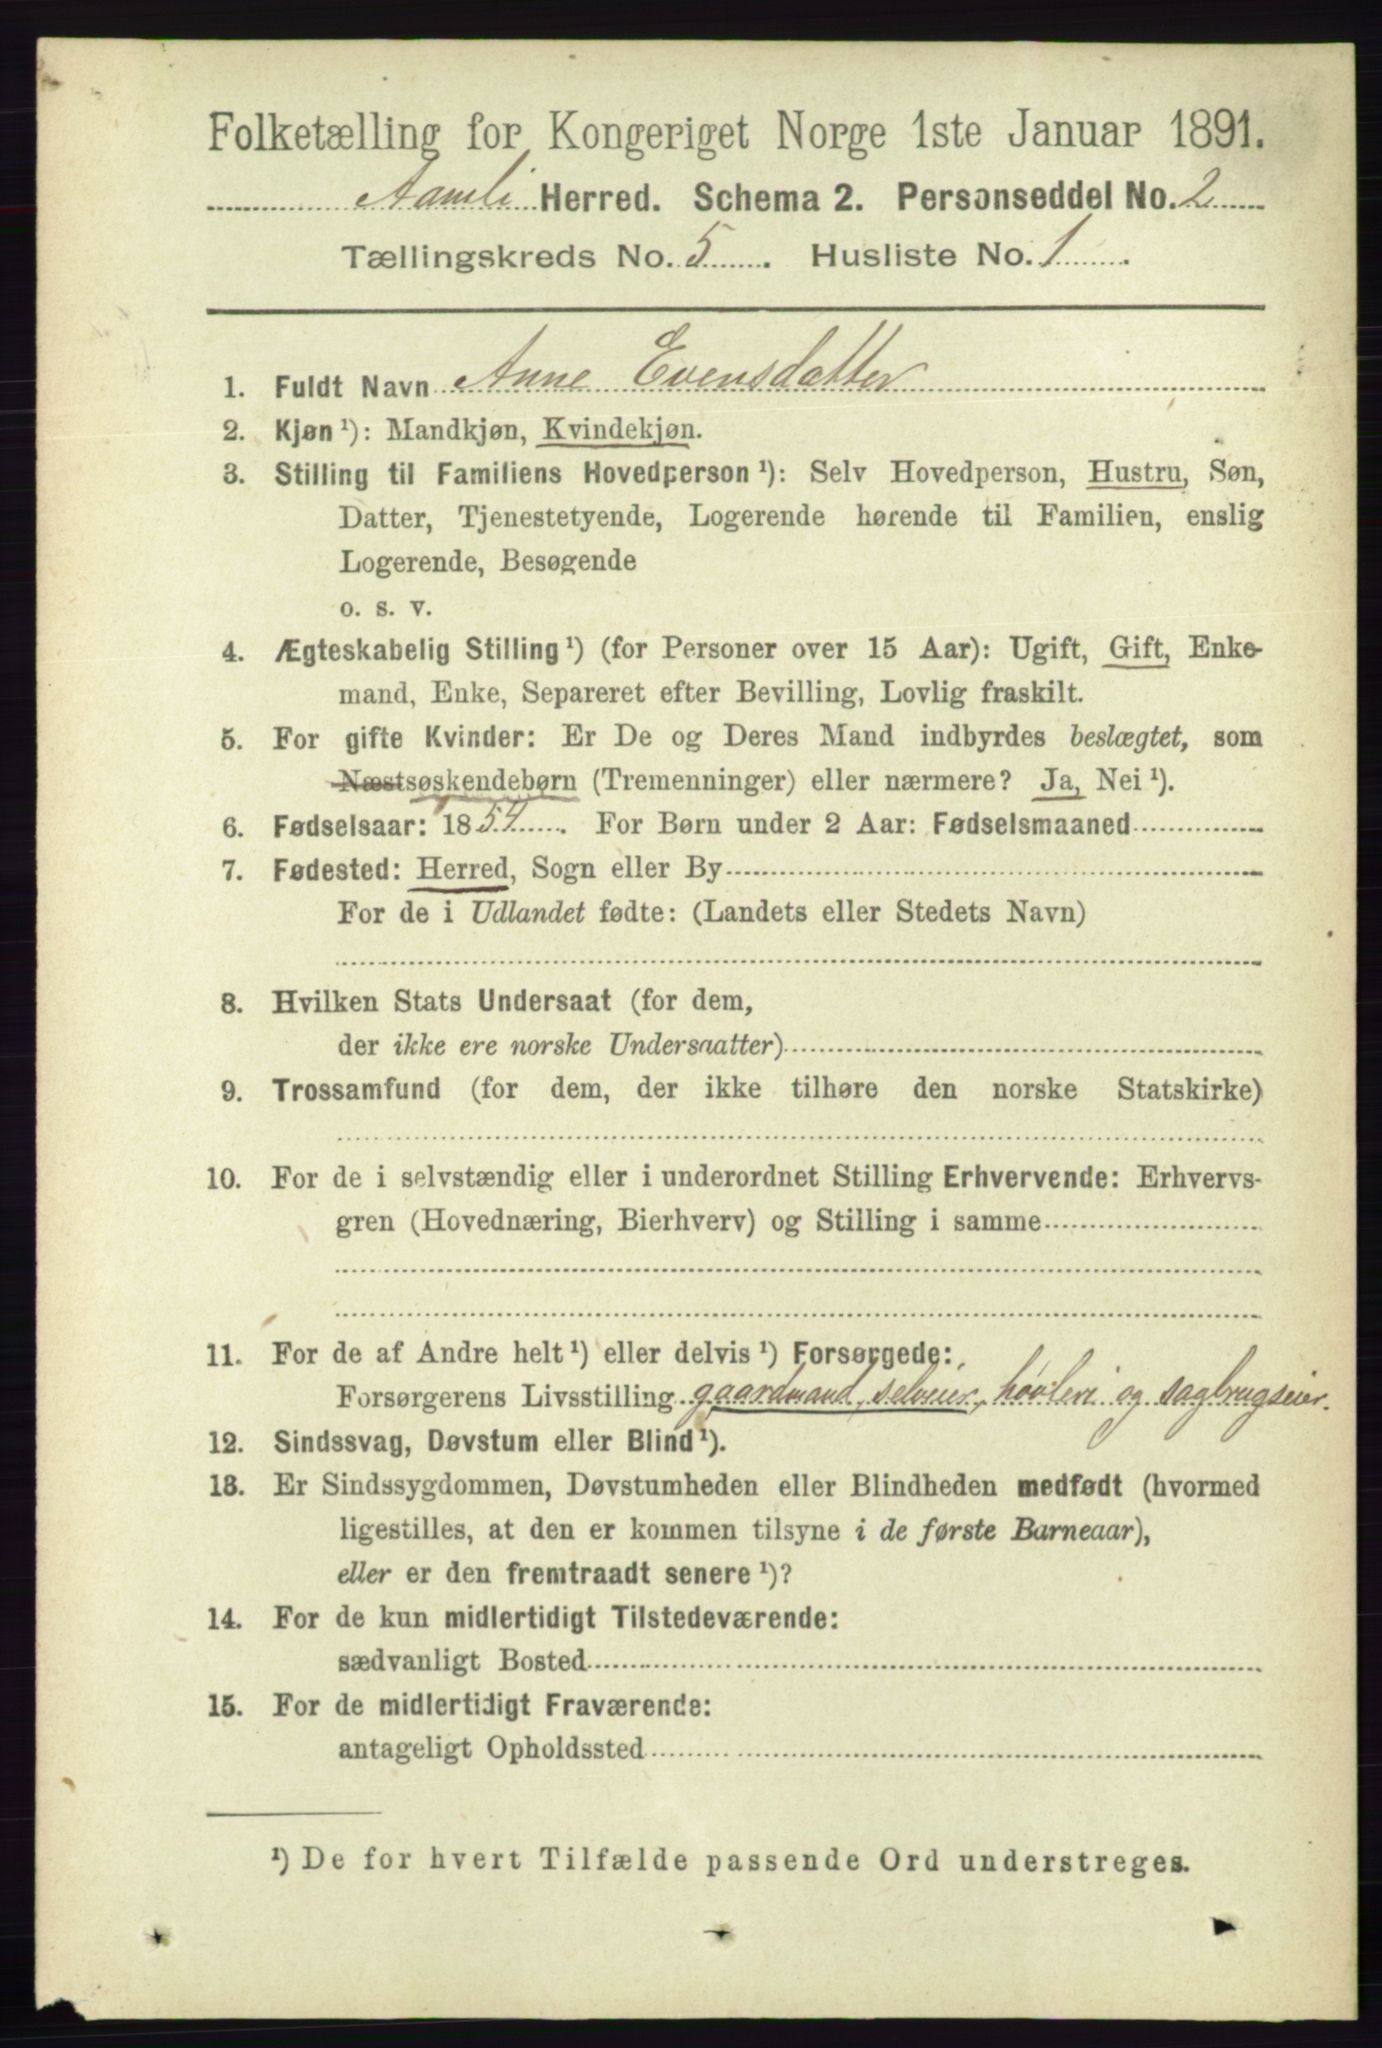 Folketælling for Kongeriget Norge 1ste Januar 1891.
Aamli Herred. Schema 2. Personseddel No. 2
Tællingskreds No. 5. Husliste No. 1.
1. Fuldt Navn Anne Evensdatter
2. Kjøn¹): Mandkjøn, Kvindekjøn.
3. Stilling til Familiens Hovedperson¹): Selv Hovedperson, Hustru, Søn,
Datter, Tjenestetyende, Logerende hørende til Familien, enslig
Logerende, Besøgende
o. s. v.
4. Ægteskabelig Stilling¹) (for Personer over 15 Aar): Ugift, Gift, Enke-
mand, Enke, Separeret efter Bevilling, Lovlig fraskilt.
5. For gifte Kvinder: Er De og Deres Mand indbyrdes beslægtet, som
Næstsøskendebørn (Tremenninger) eller nærmere? Ja, Nei¹).
6. Fødselsaar: 1854. For Børn under 2 Aar: Fødselsmaaned
7. Fødested: Herred, Sogn eller By
For de i Udlandet fødte: (Landets eller Stedets Navn)
8. Hvilken Stats Undersaat (for dem,
der ikke ere norske Undersaatter)
9. Trossamfund (for dem, der ikke tilhøre den norske Statskirke)
10. For de i selvstændig eller i underordnet Stilling Erhvervende: Erhvervs-
gren (Hovednæring, Bierhverv) og Stilling i samme
11. For de af Andre helt¹) eller delvis¹) Forsørgede:
Forsørgerens Livsstilling gaardmand, selveier, høvleri og sagbrugseier.
12. Sindssvag, Døvstum eller Blind¹).
13. Er Sindssygdommen, Døvstumheden eller Blindheden medfødt (hvormed
ligestilles, at den er kommen tilsyne i de første Barneaar),
eller er den fremtraadt senere¹)?
14. For de kun midlertidigt Tilstedeværende:
sædvanligt Bosted
15. For de midlertidigt Fraværende:
antageligt Opholdssted
¹) De for hvert Tilfælde passende Ord understreges.